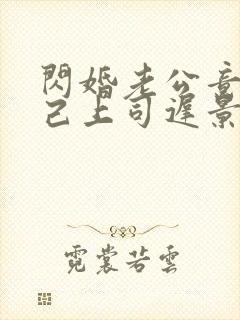 閃婚老公竟
己上司遲景
霓裳若雲